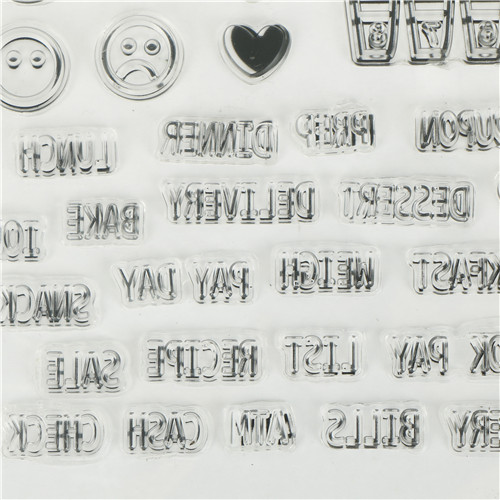 LUNCH DINNER PREP UPON
BAKE DELIVERY DESSERT
SNACK PAY DAY WEIGH KFAST
SALE RECIPE LIST PAY OK
CHECK CASH ATM BILLS ERY